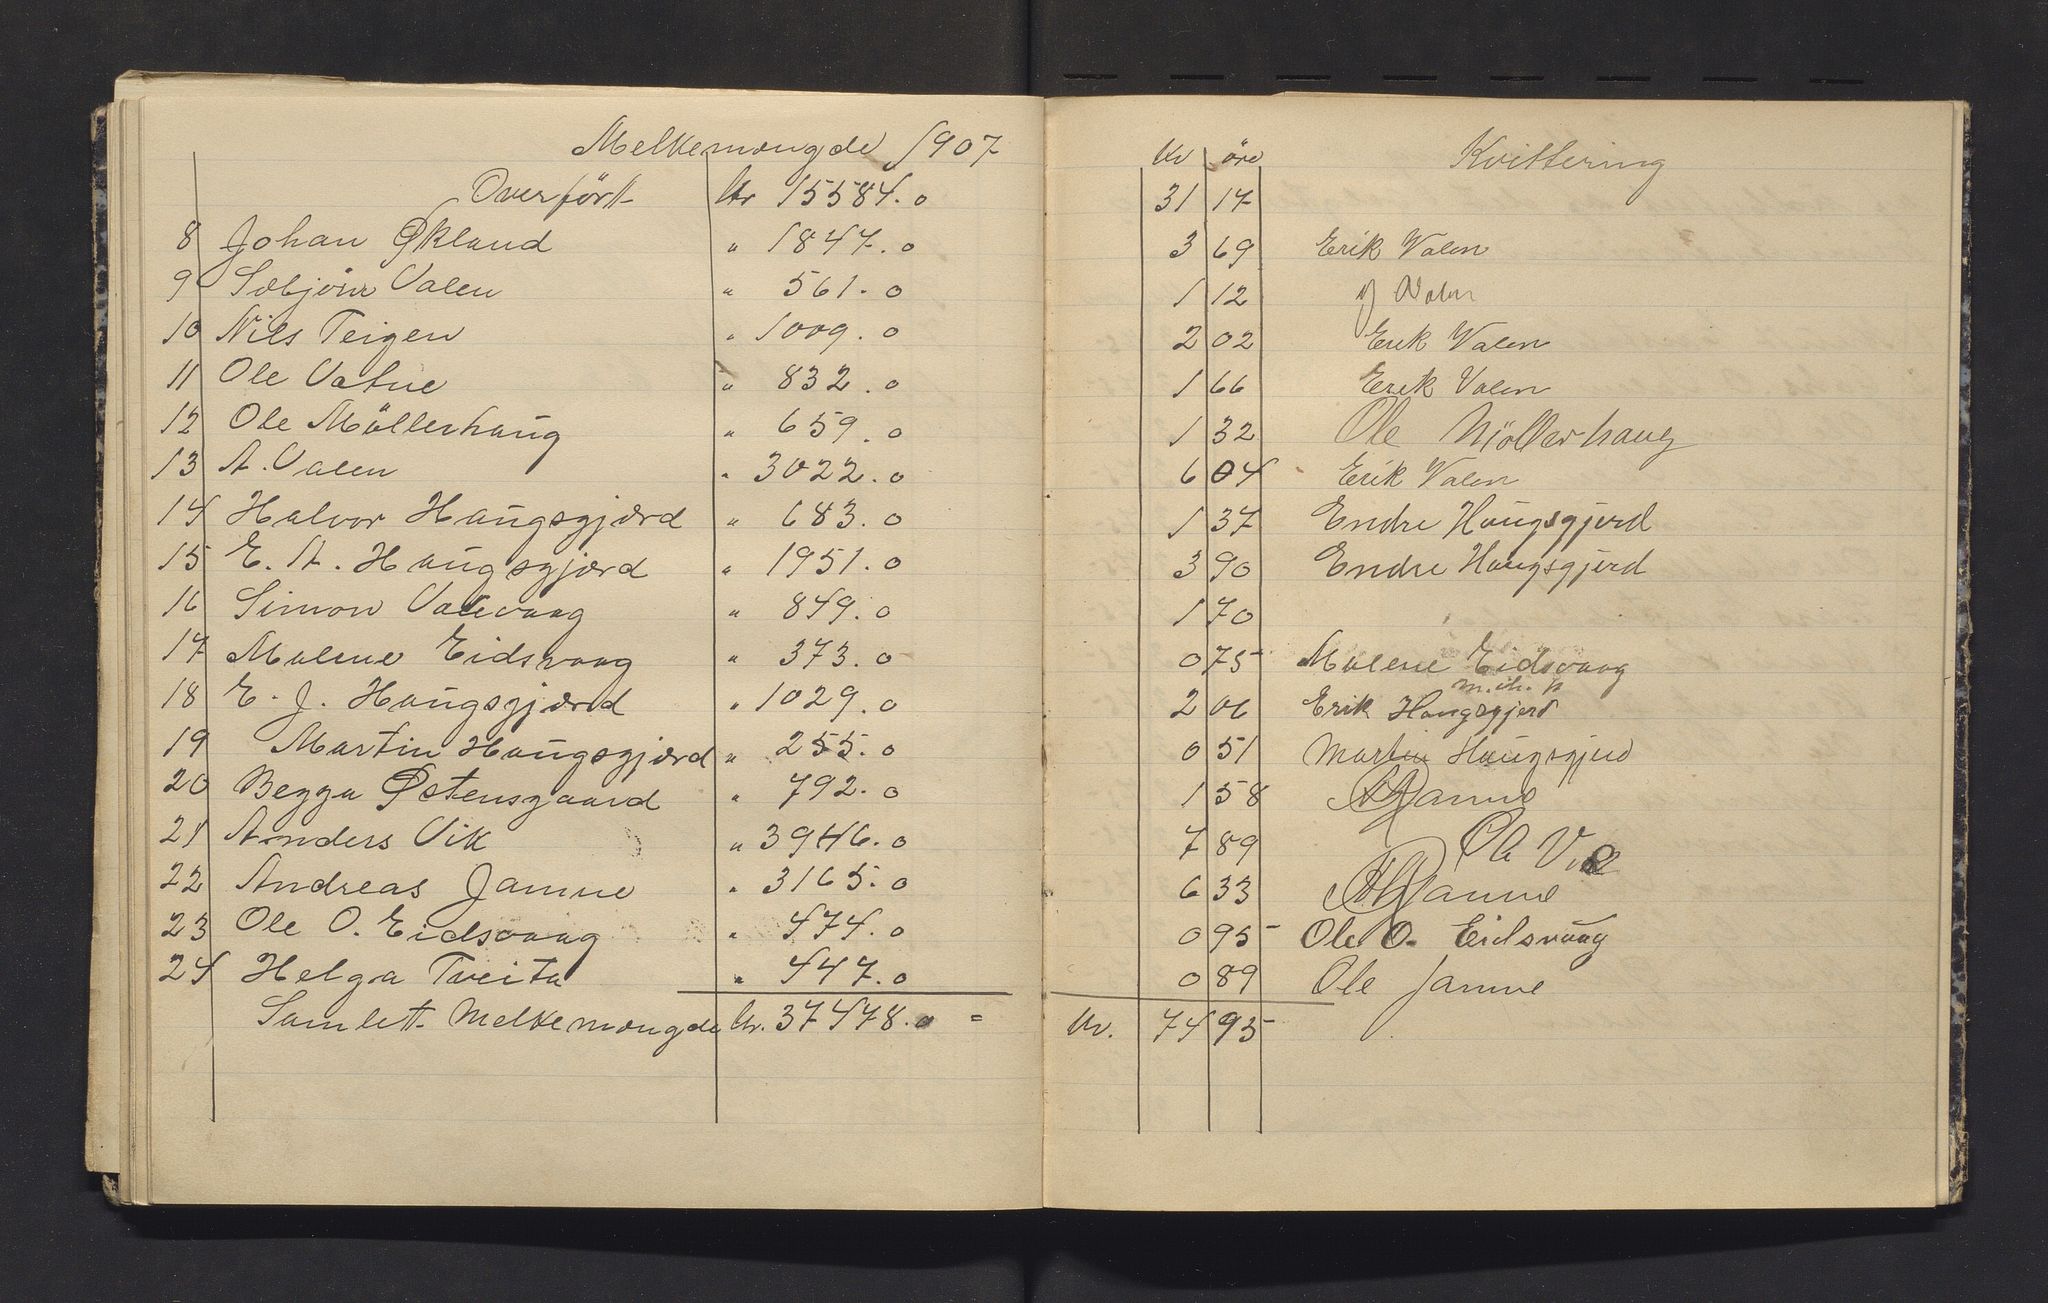 Melkemængde 1907
Overført Ltr 15584.0
8 Johan Økland " 1847.0
9 Sæbjörn Valen " 561.0
10 Nils Teigen " 1009.0
11 Ole Vatne " 832.0
12 Ole Möllerhaug " 659.0
13 A. Valen " 3022.0
14 Halvor Haugsgjærd " 683.0
15 E. A. Haugsgjærd " 1951.0
16 Simon Valevaag " 849.0
17 Malene Eidsvaag " 373.0
18 E. J. Haugsgjærd " 1029.0
19 Martin Haugsgjærd " 255.0
20 Begga Østensgaard " 792.0
21 Anders Vik " 3946.0
22 Andreas Jamne " 3165.0
23 Ole O. Eidsvaag " 474.0
24 Helga Tveita " 447.0
Samlet Melkemængde Ltr. 37478.0 =
Kr øre Kvittering
31 17
3 69 Erik Valen
1 12 Valen
2 02 Erik Valen
1 66 Erik Valen
1 32 Ole Möllerhaug
6 04 Erik Valen
1 37 Endre Haugsgjerd
3 90 Endre Haugsgjerd
1 70
0 75 Malene Eidsvaag
m. ih. p
2 06 Erik Haugsgjerd
0 51 Martin Haugsgjerd
1 58 Jamne
7 89 Ole Vik
6 33 Jamne
0 95 Ole O. Eidsvaag
0 89 Ole Jamne
Kr. 74 95